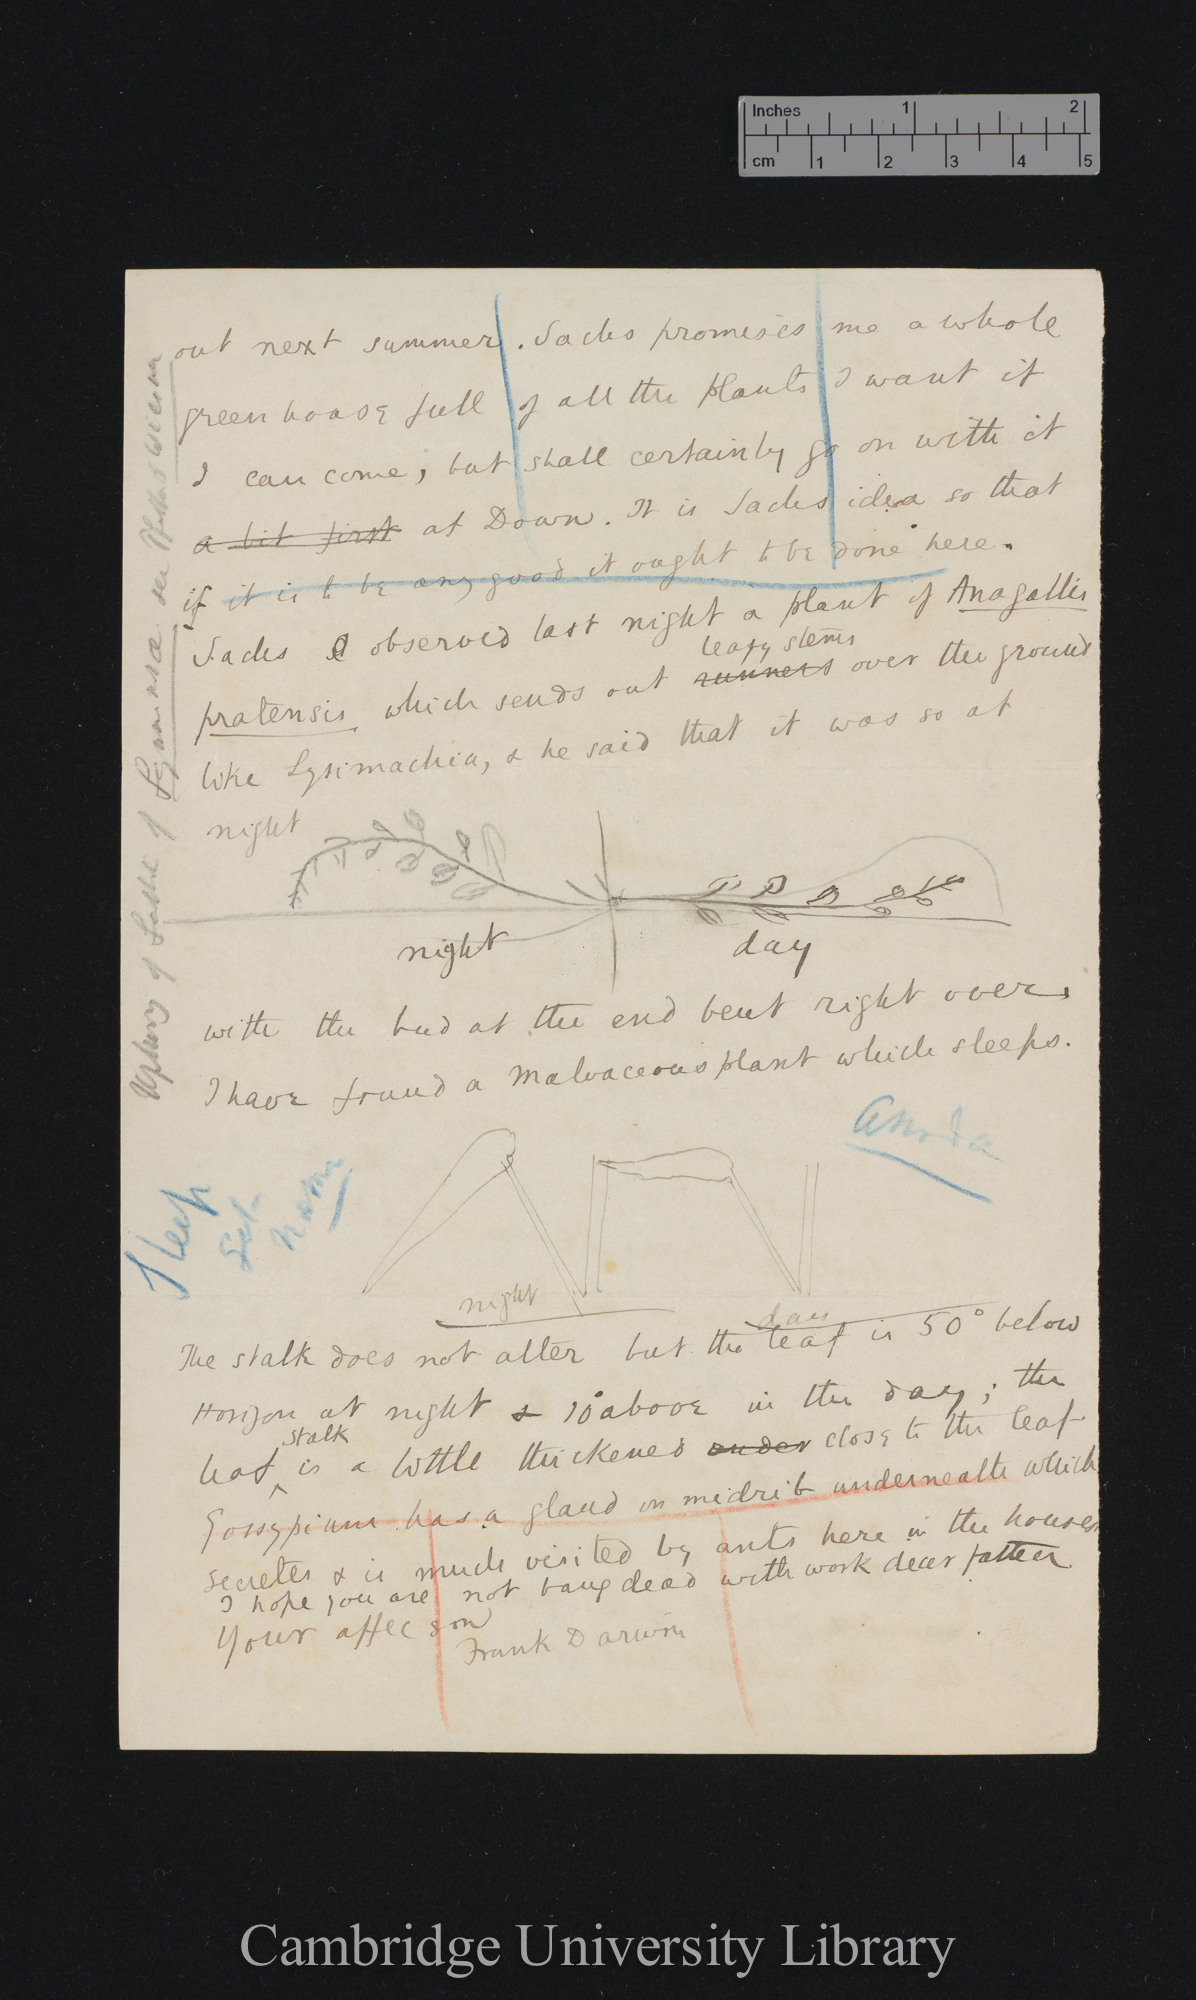 Inches 1 2
cm 1 2 3 4 5
out next summer. Sachs promises me a whole
greenhouse full of all the plants I want if
I can come, but shall certainly go on with it
a bit first at Down. It is Sachs idea so that
if it is to be any good it ought to be done here.
Sachs observed last night a plant of Anagallis
leafy stems
pratensis which sends out runners over the ground
like Lysimachia, & he said that it was so at
night
night
day
with the bud at the end bent right over,
I have found a Malvaceous plant which sleeps.
Anoda
Sleep
night
day
The stalk does not alter but the leaf is 50° below
Horizon at night & 10° above in the day; the
stalk
leaf is a little thickened under close to the leaf
Gossypium has a gland on midrib underneath which
secretes & is much visited by ants here in the houses
I hope you are not bang dead with work dear father
Your affec son
Frank Darwin
Cambridge University Library